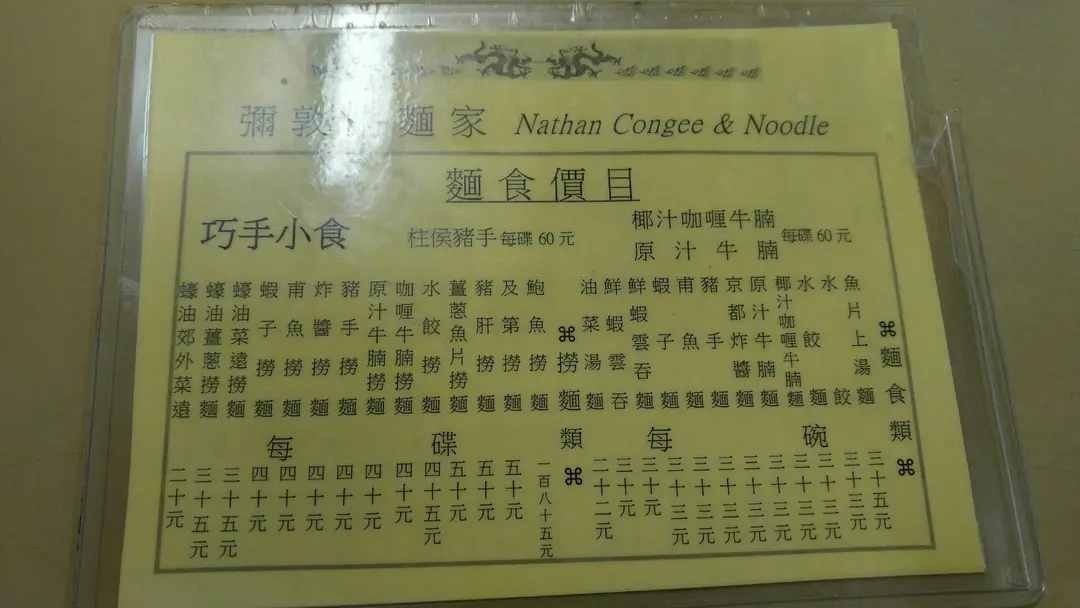 彌敦粥麵家 Nathan Congee & Noodle
麵食價目
巧手小食
柱侯豬手 每碟 60 元
椰汁咖喱牛腩
原汁牛腩
每碟 60 元
⌘麵食類⌘
魚片上湯麵
水餃
水餃麵
椰汁咖喱牛腩麵
原汁牛腩麵
京都炸醬麵
豬手麵
甫魚麵
蝦子麵
鮮蝦雲吞麵
鮮蝦雲吞
油菜湯麵
每碗
三十五元
三十三元
三十三元
三十三元
三十三元
三十三元
三十三元
三十三元
三十三元
三十元
三十元
二十二元
⌘撈麵類⌘
鮑魚撈麵
及第撈麵
豬肝撈麵
薑蔥魚片撈麵
水餃撈麵
咖喱牛腩撈麵
原汁牛腩撈麵
豬手撈麵
炸醬撈麵
甫魚撈麵
蝦子撈麵
蠔油菜遠撈麵
蠔油薑蔥撈麵
蠔油郊外菜遠
每碟
一百八十五元
五十元
五十元
五十元
四十五元
四十元
四十元
四十元
四十元
四十元
四十元
三十五元
三十五元
二十元